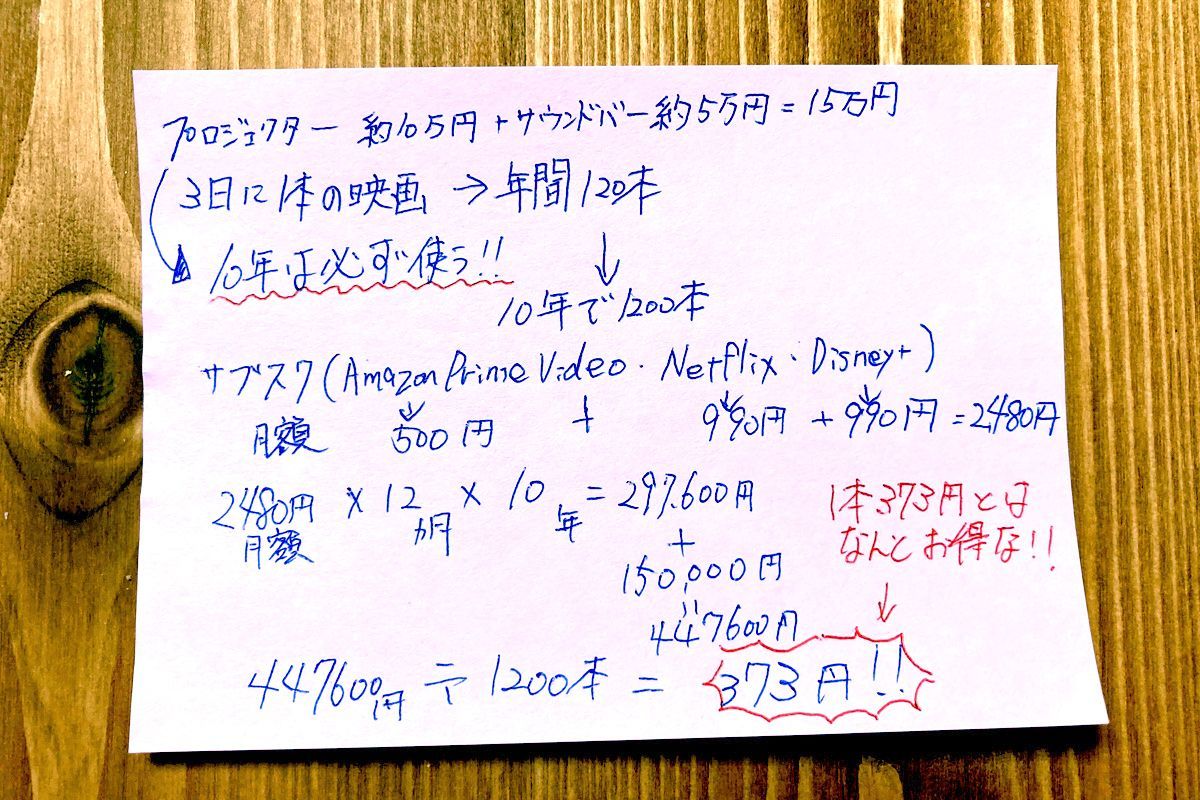 プロジェクター 約10万円+サウンドバー約5万円=15万円
3日に1本の映画 → 年間120本
10年は必ず使う!!
↓
10年で1200本
サブスク(Amazon Prime Video・Netflix・Disney+)
月額 500円 + 990円 + 990円 = 2,480円
2480円 × 12 × 10 = 297.600円
月額 カ月 年
+
150,000円
〃
447600円
1本373円とは
なんとお得な!!
↓
447600円 ÷ 1200本 = 373円!!